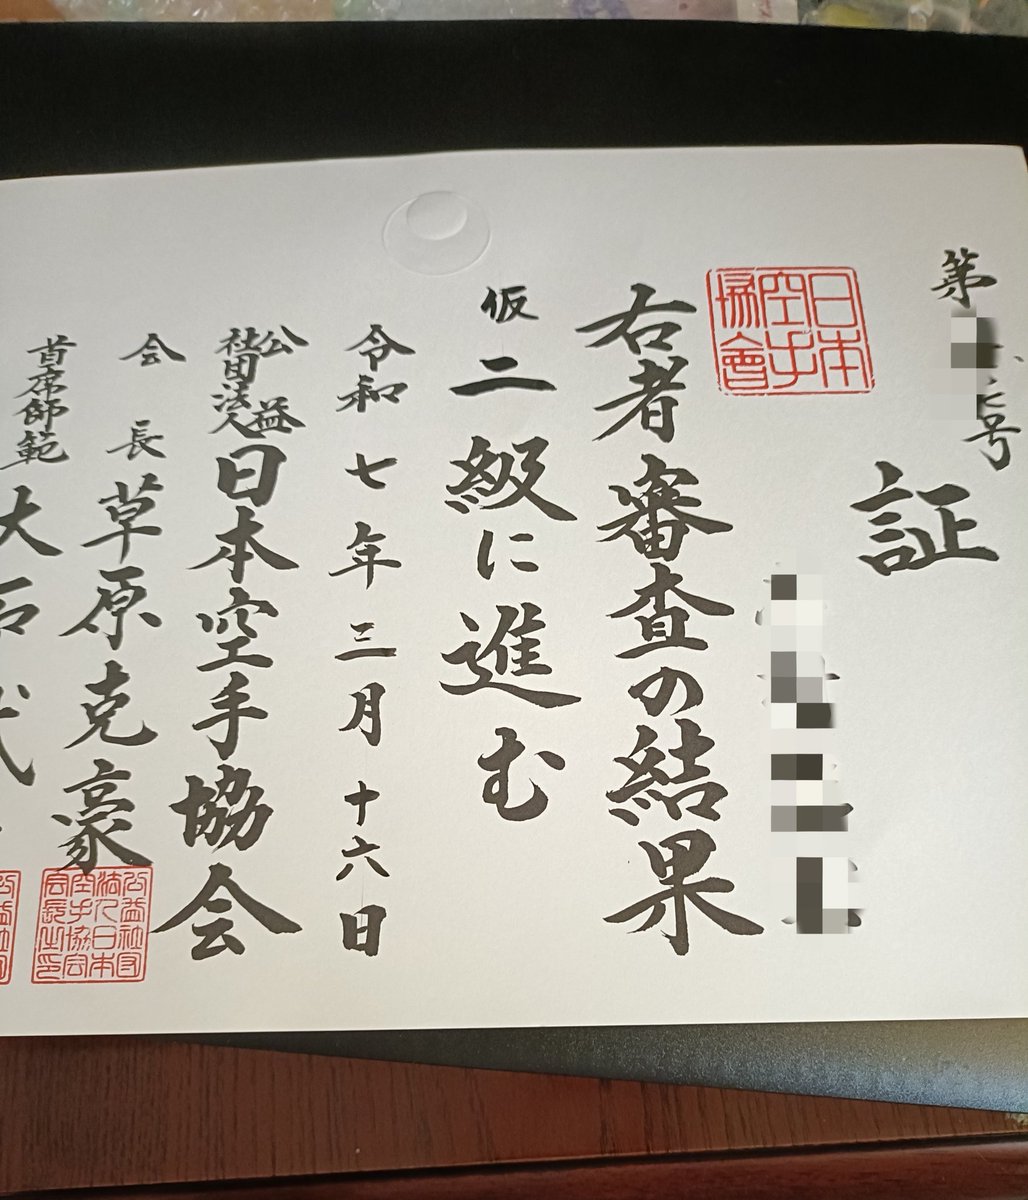 第 号
証
日本空手協會
右者審査の結果
仮二級に進む
令和七年三月十六日
公益社団法人日本空手協会
会長草原克豪
公益社団法人日本空手協会会長之印
首席師範大石武
公益社団